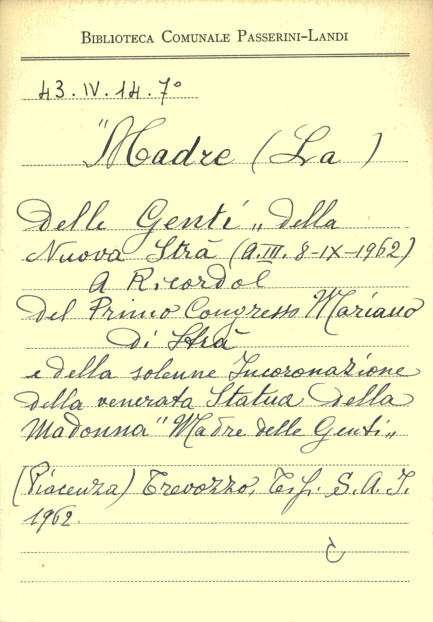 BIBLIOTECA COMUNALE PASSERINI-LANDI
43.IV.14.7°
"Madre (La)
Delle Genti„ della
Nuova Strà (A.III. 8-IX-1962)
A Ricordo
del Primo Congresso Mariano
di Strà
e della solenne Incoronazione
della venerata Statua della
Madonna "Madre delle Genti„
(Piacenza) Trevozzo, Tip. S.A.T.
1962.